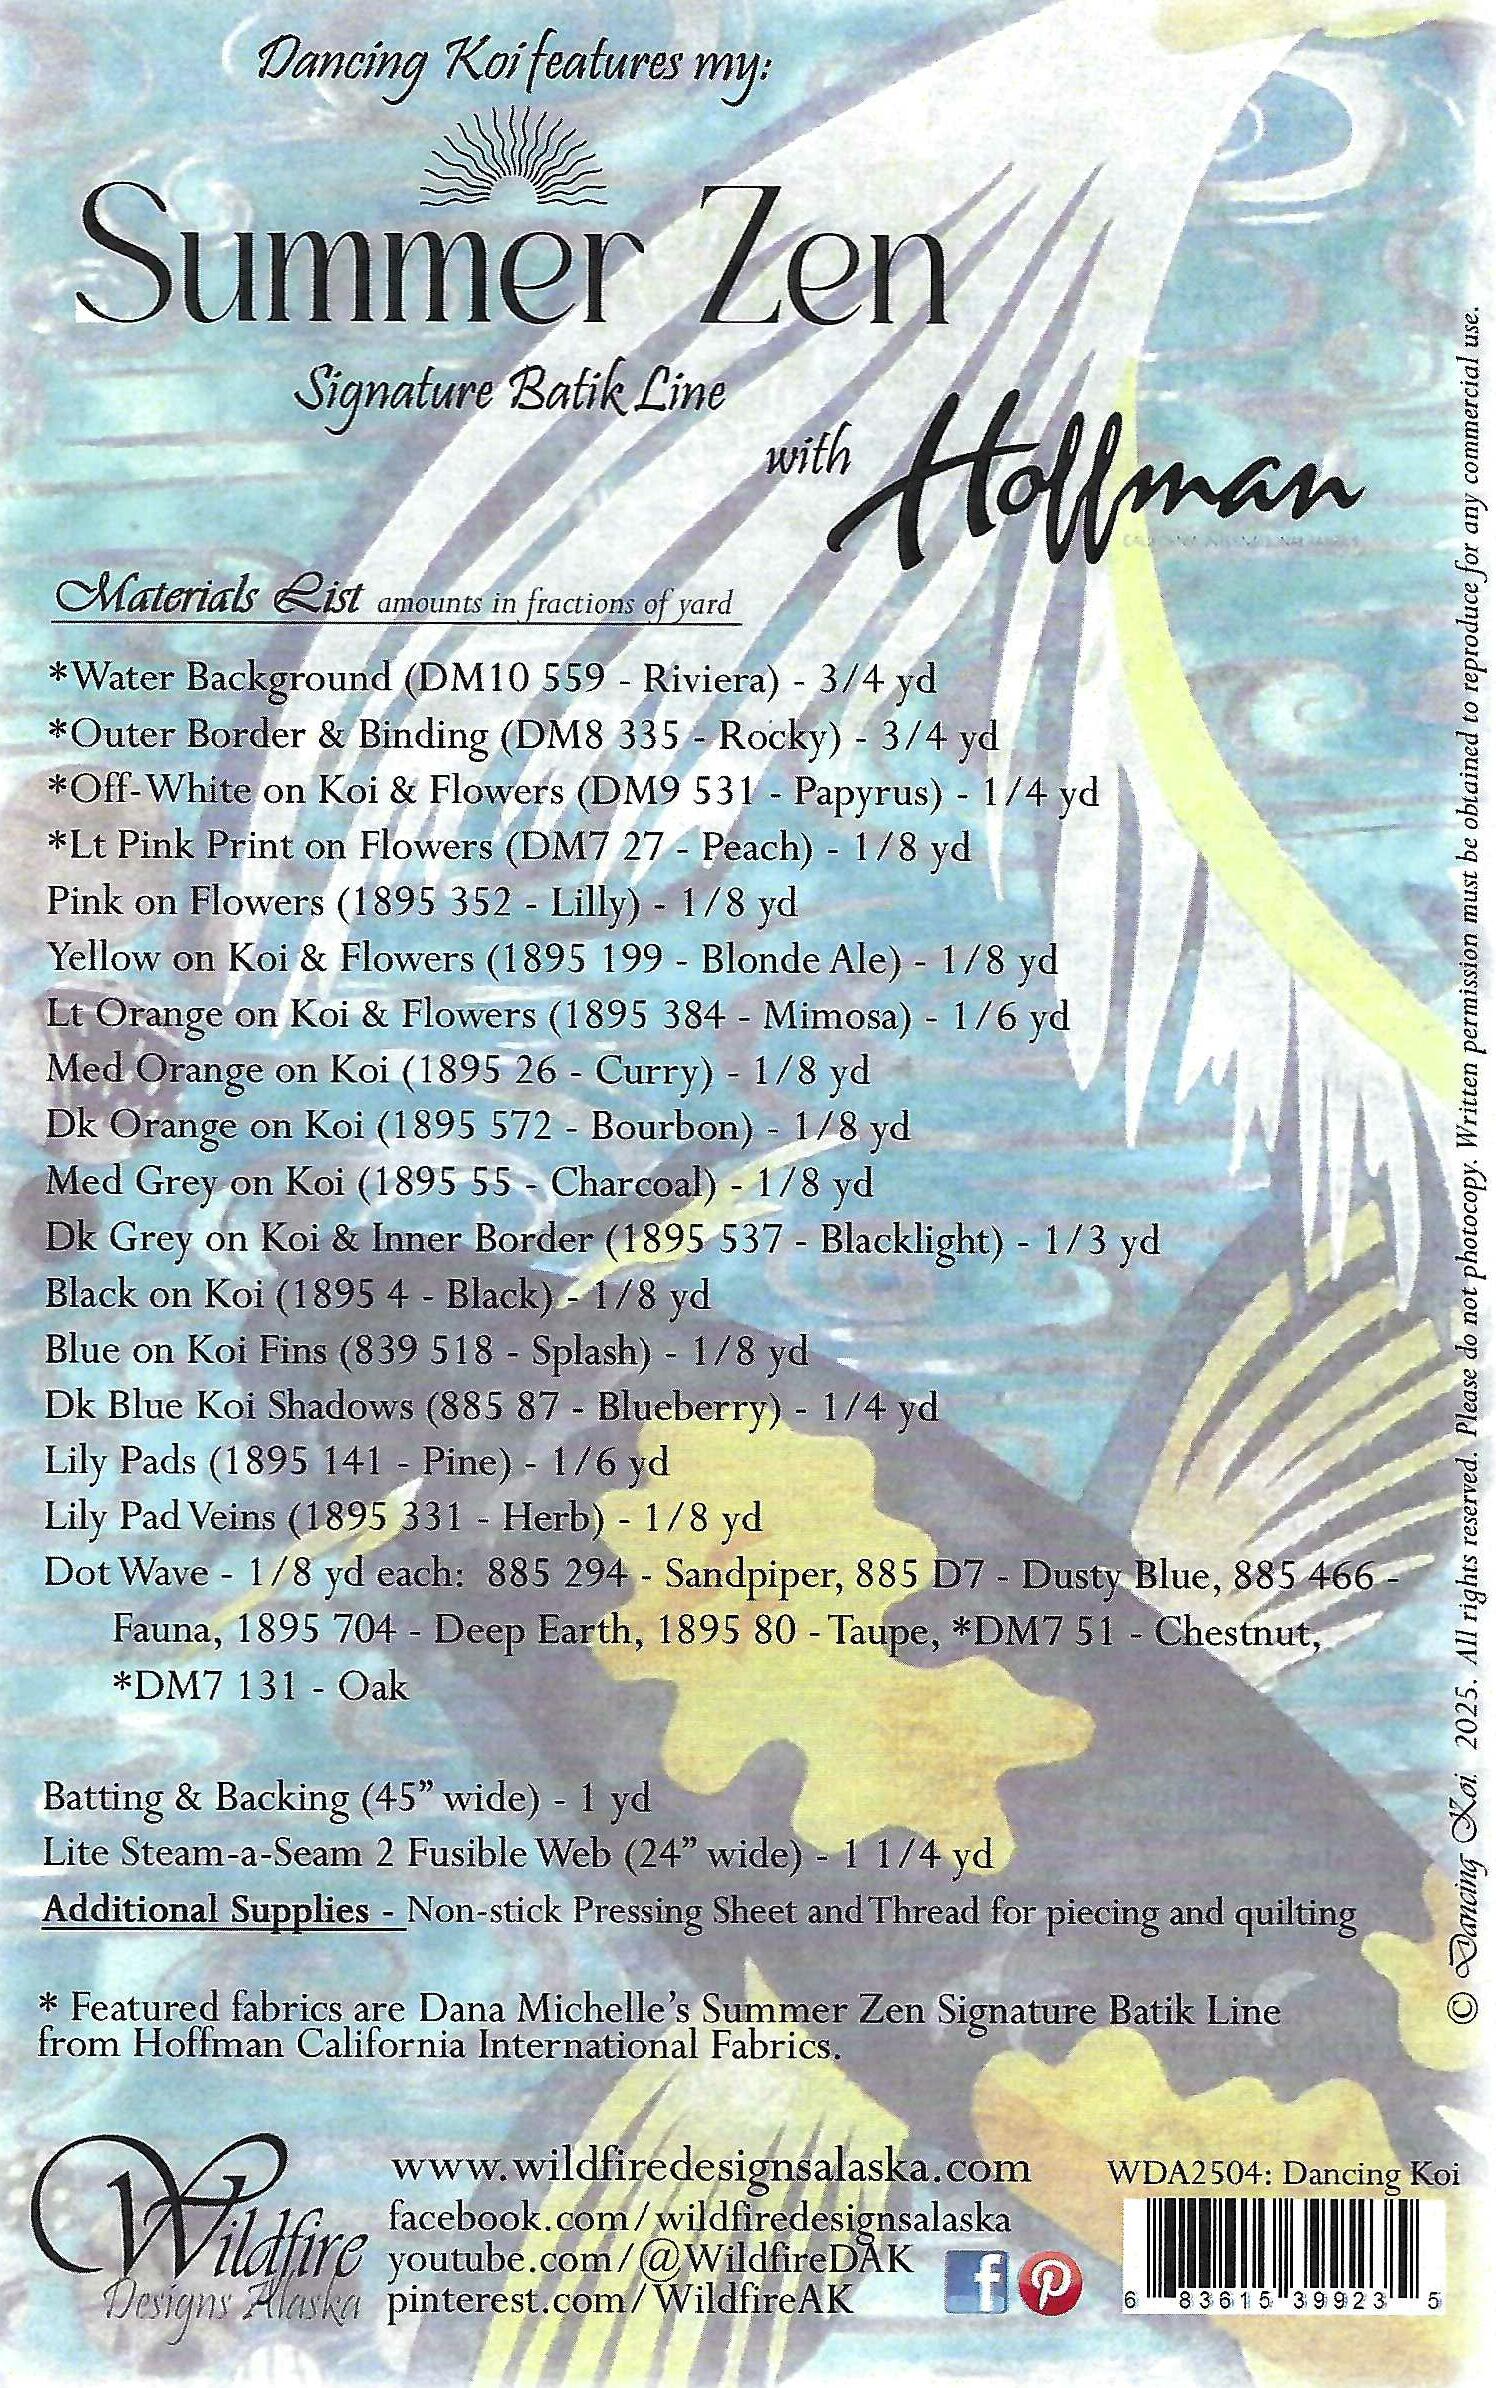 Dancing Koi features my:
Summer Zen
Signature Batik Line
with Hoffman
CALIFORNIA INTERNATIONAL FABRICS
Materials List amounts in fractions of yard
*Water Background (DM10 559 - Riviera) - 3/4 yd
*Outer Border & Binding (DM8 335 - Rocky) - 3/4 yd
*Off-White on Koi & Flowers (DM9 531 - Papyrus) - 1/4 yd
*Lt Pink Print on Flowers (DM7 27 - Peach) - 1/8 yd
Pink on Flowers (1895 352 - Lilly) - 1/8 yd
Yellow on Koi & Flowers (1895 199 - Blonde Ale) - 1/8 yd
Lt Orange on Koi & Flowers (1895 384 - Mimosa) - 1/6 yd
Med Orange on Koi (1895 26 - Curry) - 1/8 yd
Dk Orange on Koi (1895 572 - Bourbon) - 1/8 yd
Med Grey on Koi (1895 55 - Charcoal) - 1/8 yd
Dk Grey on Koi & Inner Border (1895 537 - Blacklight) - 1/3 yd
Black on Koi (1895 4 - Black) - 1/8 yd
Blue on Koi Fins (839 518 - Splash) - 1/8 yd
Dk Blue Koi Shadows (885 87 - Blueberry) - 1/4 yd
Lily Pads (1895 141 - Pine) - 1/6 yd
Lily Pad Veins (1895 331 - Herb) - 1/8 yd
Dot Wave - 1/8 yd each: 885 294 - Sandpiper, 885 D7 - Dusty Blue, 885 466 -
Fauna, 1895 704 - Deep Earth, 1895 80 - Taupe, *DM7 51 - Chestnut,
*DM7 131 - Oak
Batting & Backing (45” wide) - 1 yd
Lite Steam-a-Seam 2 Fusible Web (24” wide) - 1 1/4 yd
Additional Supplies - Non-stick Pressing Sheet and Thread for piecing and quilting
* Featured fabrics are Dana Michelle's Summer Zen Signature Batik Line
from Hoffman California International Fabrics.
Wildfire
Designs Alaska
www.wildfiredesignsalaska.com
facebook.com/wildfiredesignsalaska
youtube.com/@WildfireDAK
pinterest.com/WildfireAK
WDA2504: Dancing Koi
6 83615 39923 5
© Dancing Koi. 2025. All rights reserved. Please do not photocopy. Written permission must be obtained to reproduce for any commercial use.